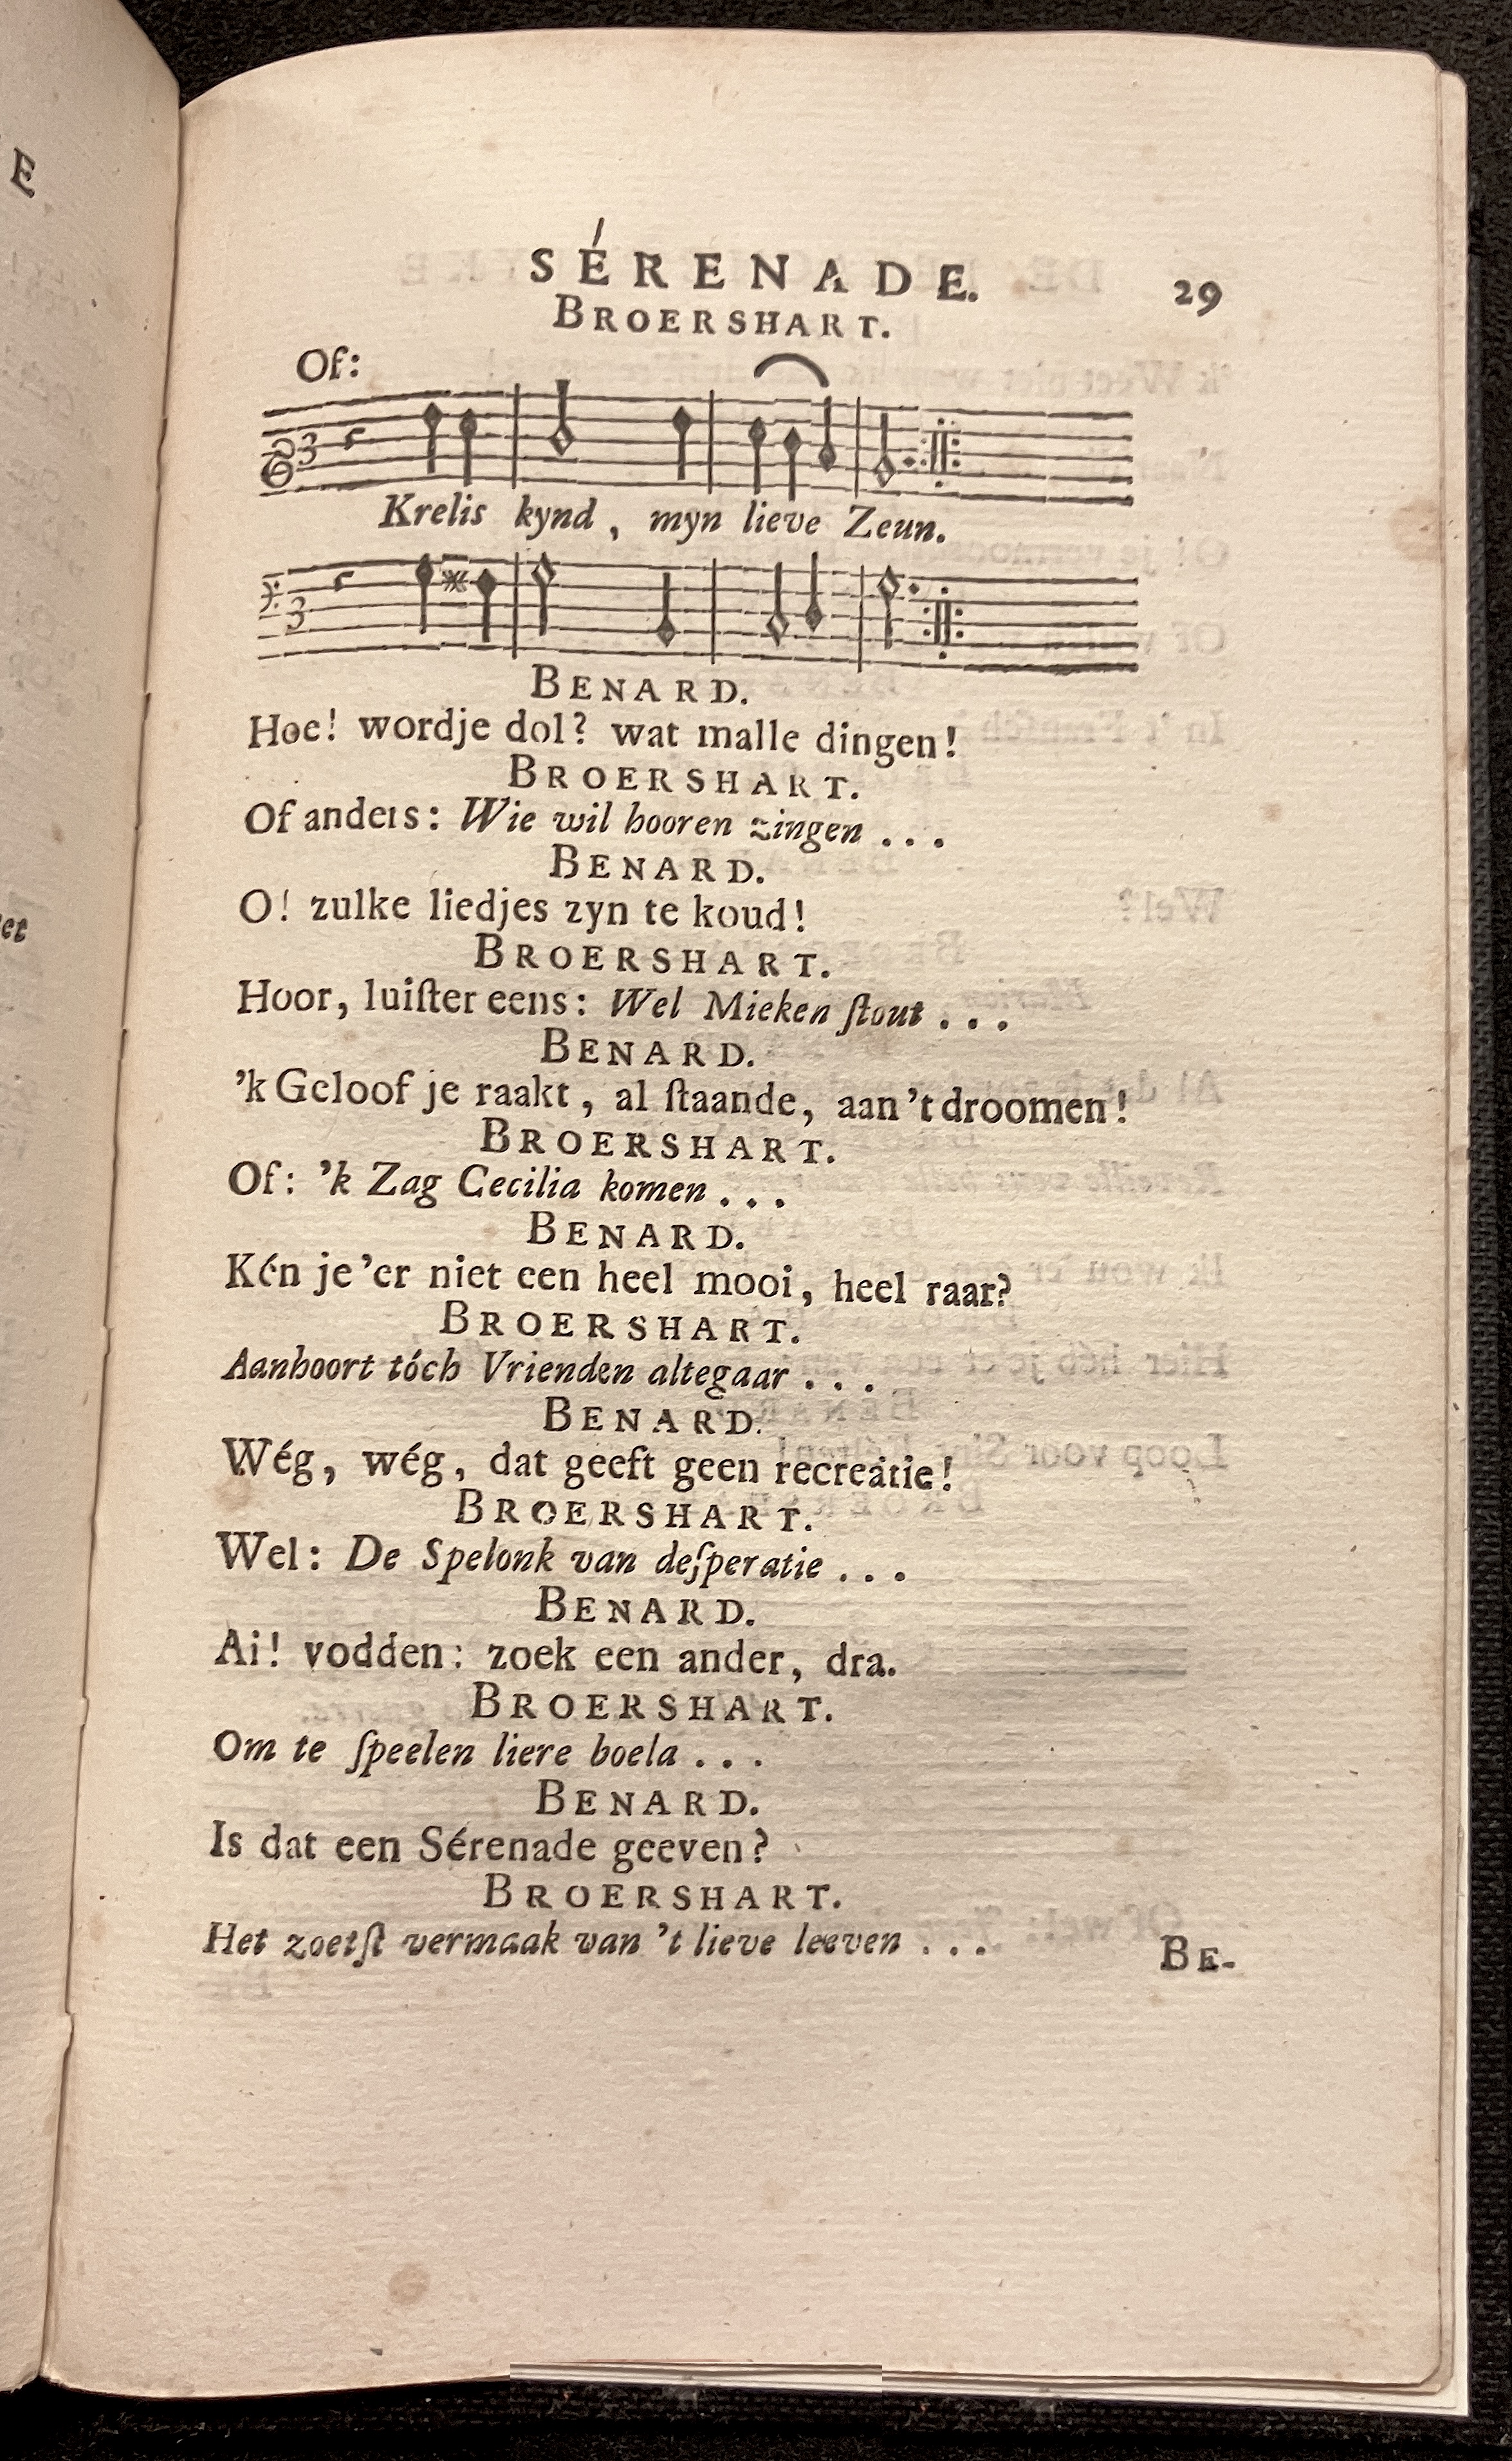 E
et
SÉRENADE. 29
BROERSHART.
Of:
Krelis kynd, myn lieve Zeun.
BENARD.
Hoe! wordje dol? wat malle dingen!
BROERSHART.
Of anders: Wie wil hooren zingen . . .
BENARD.
O! zulke liedjes zyn te koud!
BROERSHART.
Hoor, luiſter eens: Wel Mieken ſtout . . .
BENARD.
’k Geloof je raakt, al ſtaande, aan ’t droomen!
BROERSHART.
Of: ’k Zag Cecilia komen . . .
BENARD.
Kén je ’er niet een heel mooi, heel raar?
BROERSHART.
Aanhoort tóch Vrienden altegaar . . .
BENARD.
Wég, wég, dat geeft geen recreätie!
BROERSHART.
Wel: De Spelonk van deſperatie . . .
BENARD.
Ai! vodden: zoek een ander, dra.
BROERSHART.
Om te ſpeelen liere boela . . .
BENARD.
Is dat een Sérenade geeven?
BROERSHART.
Het zoetſt vermaak van ’t lieve leeven . . .
BE-